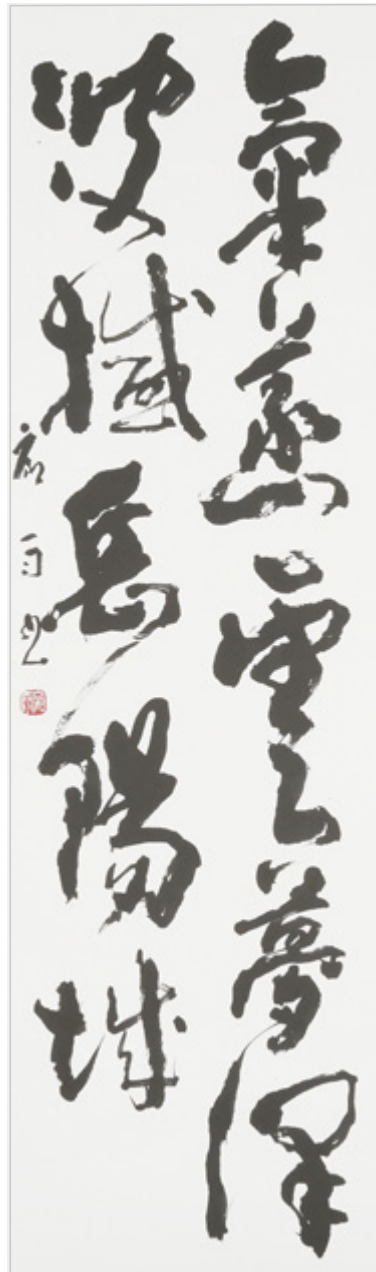 氣蒸雲夢澤
波撼岳陽城